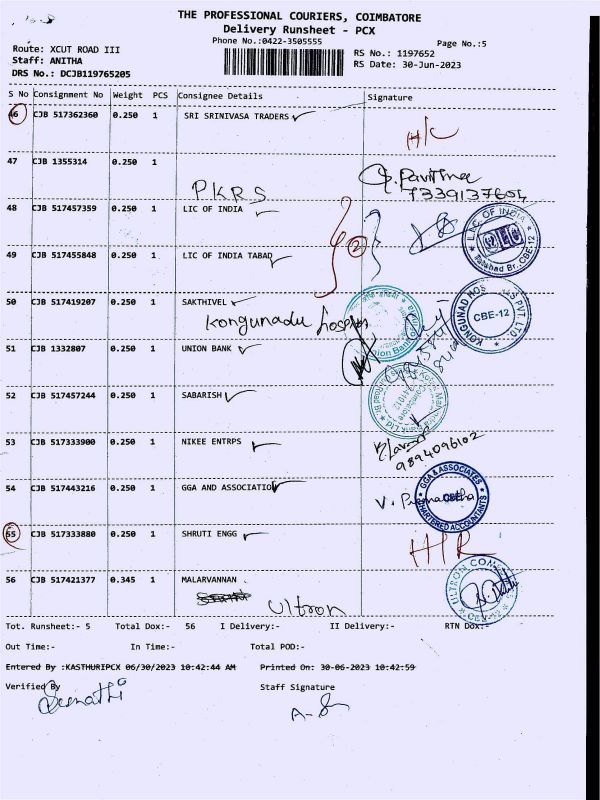 THE PROFESSIONAL COURIERS, COIMBATORE
Delivery Runsheet - PCX
Phone No.:0422-3505555
Page No.:5
Route: XCUT ROAD III
Staff: ANITHA
DRS No.: DCJB119765205
RS No.: 1197652
RS Date: 30-Jun-2023
S No Consignment No Weight PCS Consignee Details Signature
46 CJB 517362360 0.250 1 SRI SRINIVASA TRADERS
H/C
47 CJB 1355314 0.250 1
PKRS
Pavithra
7339137604
48 CJB 517457359 0.250 1 LIC OF INDIA
2
L.I.C. OF INDIA
CBE-12
49 CJB 517455848 0.250 1 LIC OF INDIA TABAD
50 CJB 517419207 0.250 1 SAKTHIVEL
Kongunadu hospital
CBE-12
51 CJB 1332807 0.250 1 UNION BANK
52 CJB 517457244 0.250 1 SABARISH
53 CJB 517333900 0.250 1 NIKEE ENTRPS
9894096102
54 CJB 517443216 0.250 1 GGA AND ASSOCIATION
GGA & ASSOCIATES
CHARTERED ACCOUNTANTS
55 CJB 517333880 0.250 1 SHRUTI ENGG
56 CJB 517421377 0.345 1 MALARVANNAN
Ultron
Tot. Runsheet:- 5 Total Dox:- 56 I Delivery:- II Delivery:- RTN Dox:-
Out Time:- In Time:- Total POD:-
Entered By :KASTHURIPCX 06/30/2023 10:42:44 AM Printed On: 30-06-2023 10:42:59
Verified By Staff Signature